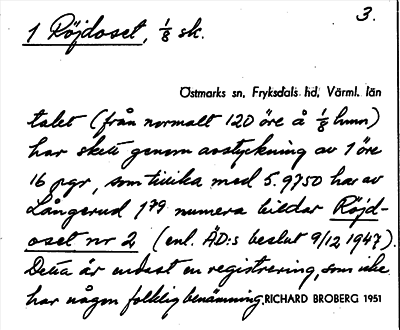 3.
1 Röjdoset, 1/8 sk.
Östmarks sn, Fryksdals hd, Värml. län
talet (från normalt 120 öre å 1/8 hmn)
har skett genom avstyckning av 1 öre
16 pgr, som tillika med 5.9750 har av
Långerud 1 79 numera bildar Röjd-
oset nr 2 (enl. ÄD:s beslut 9/12 1947).
Detta är endast en registrering, som icke
har någon folklig benämning. RICHARD BROBERG 1951